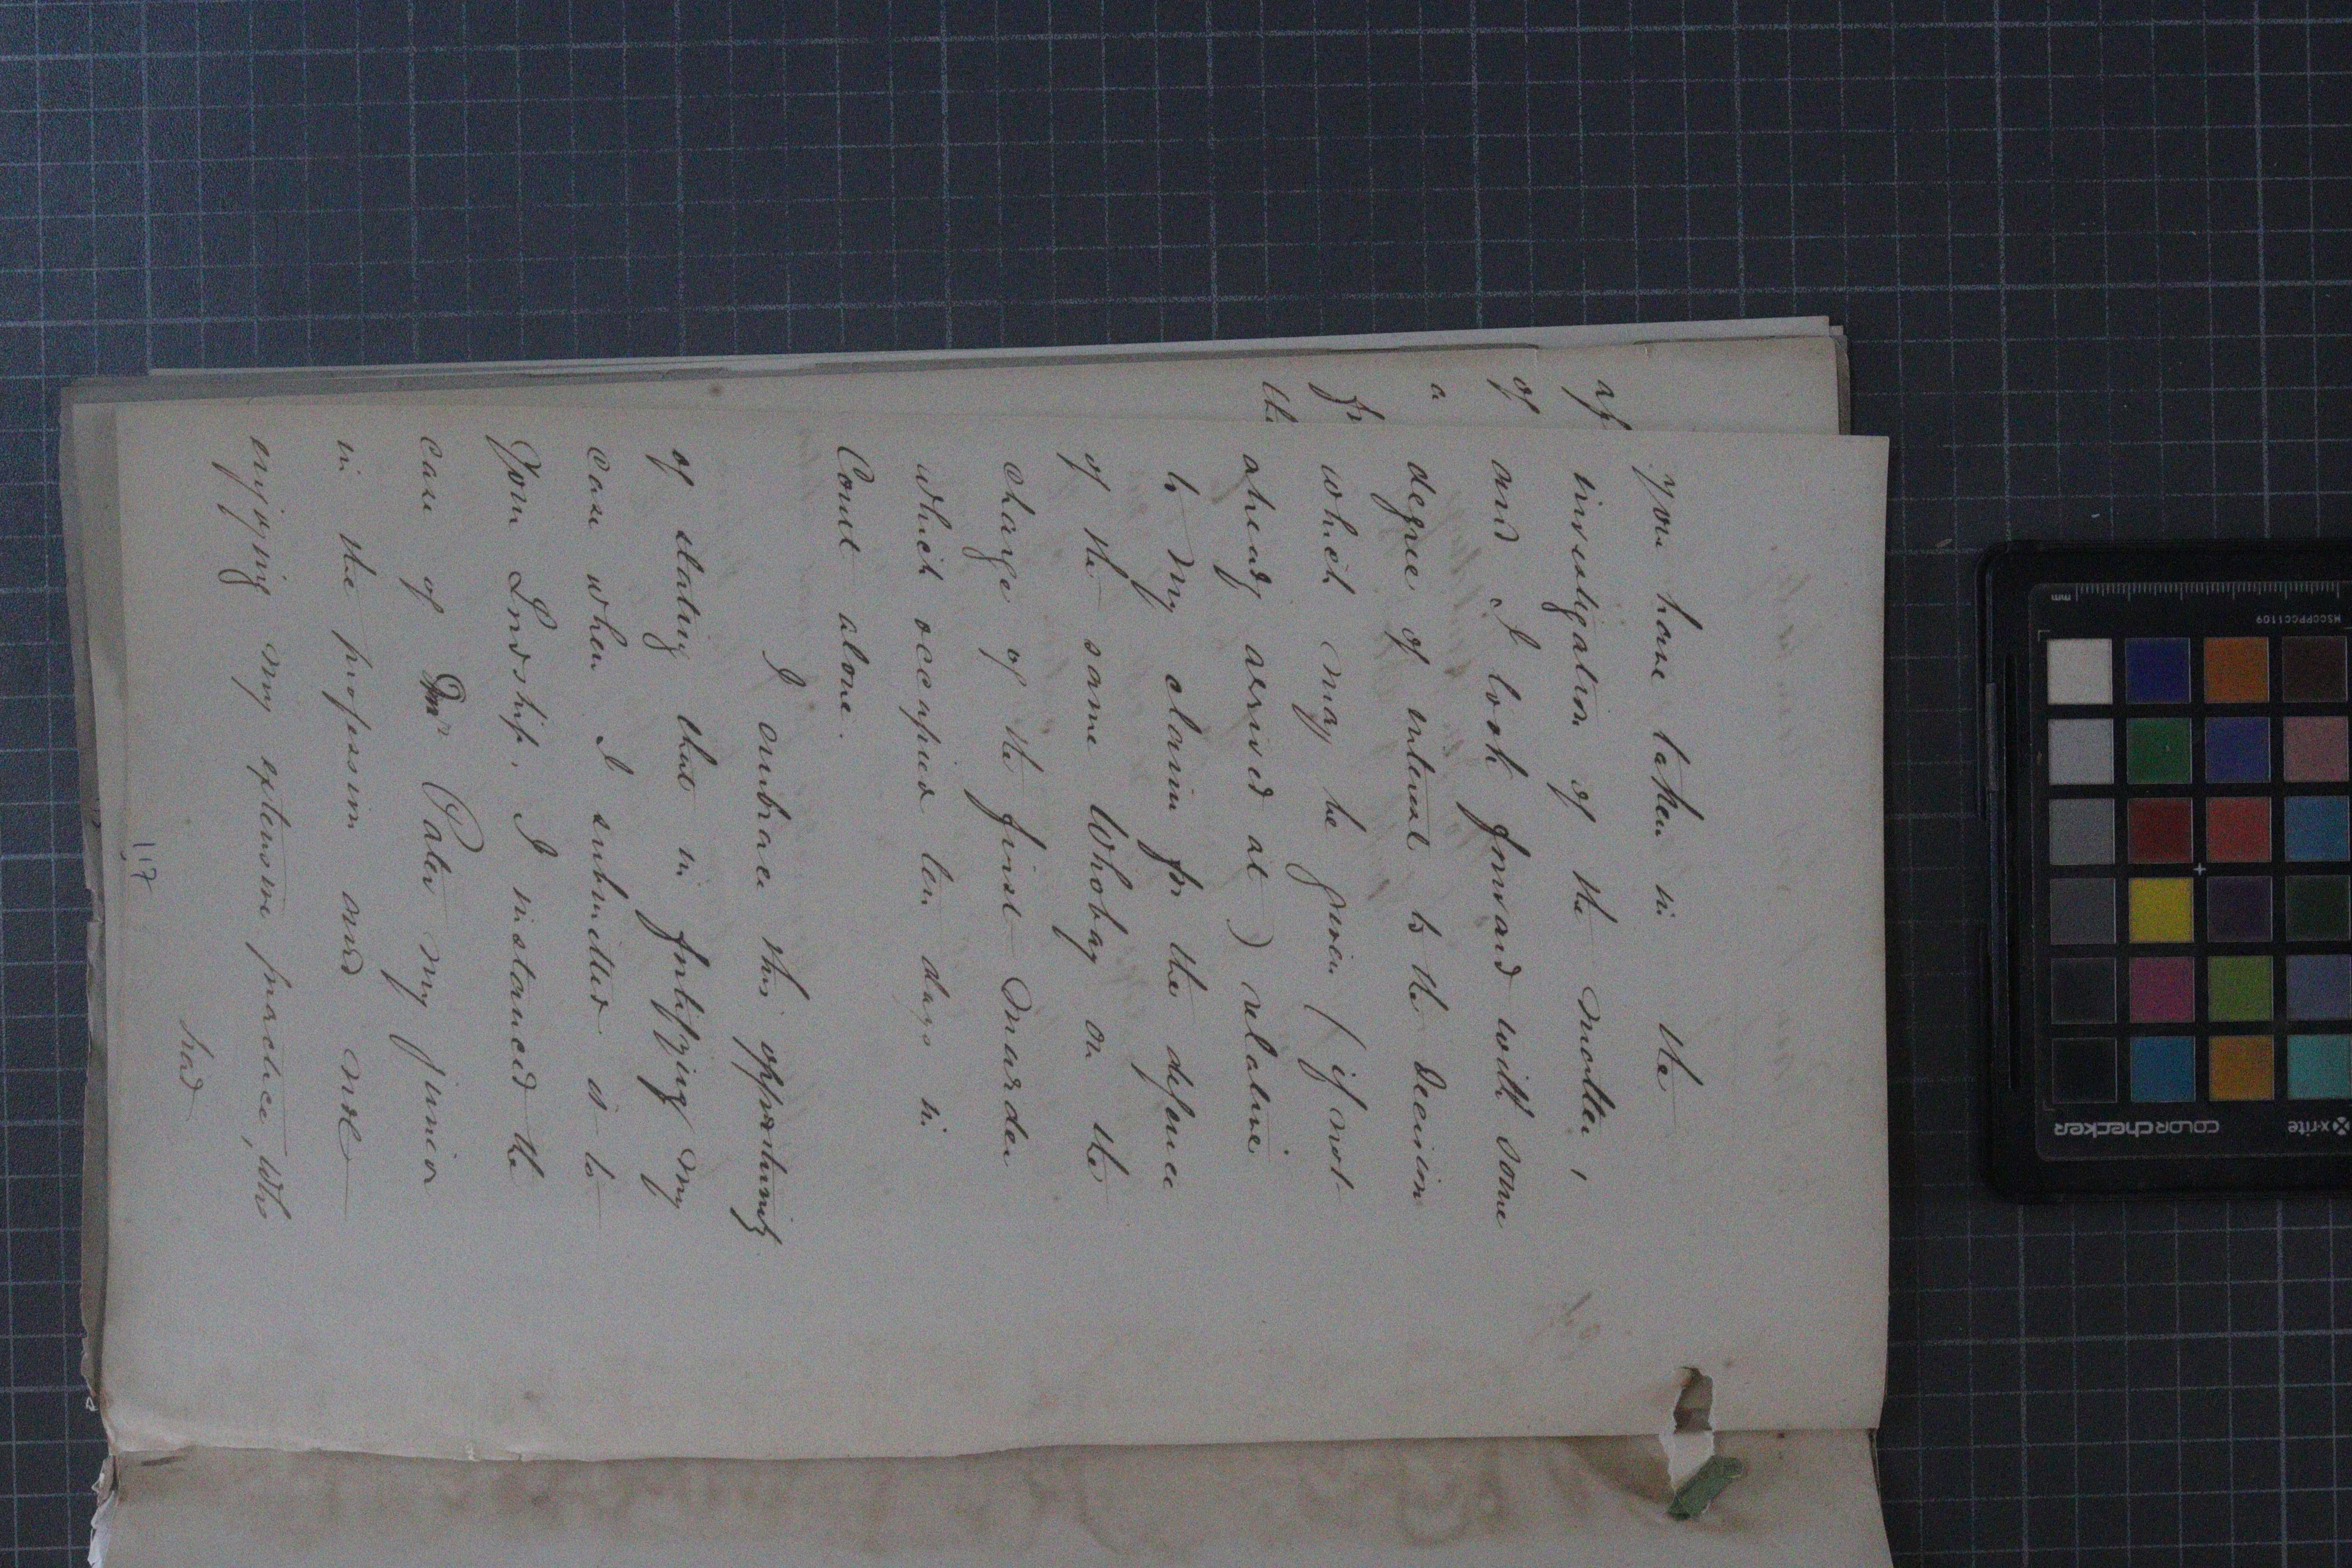 you have taken in the
investigation of the matter,
and I look forward with some
degree of interest to the decision
which may be given (if not
already arrived at) relative
to my claim for the defence
of the same Whobag on the
charge of the first Murder
which occupied ten days in
Court alone.
I embrace this opportunity
of stating that in fortifying my
case when I submitted it to
Your Lordship, I instanced the
case of Mr Pater my junior
in the profession and not
enjoying my extensive practice, who
had
117
of
a
fr
th